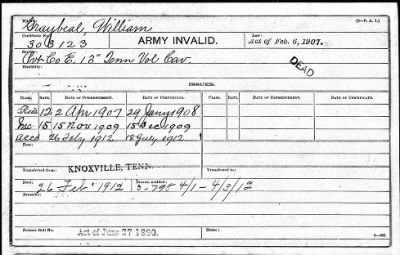 Graybeal, William
(3—F. A. I.)
Certificate No.
303123
ARMY INVALID.
Law:
Act of Feb. 6, 1907.
Pvt Co E. 13" Tenn Vol Cav.
DEAD
Disability:
ISSUES.
CLASS. RATE. DATE OF COMMENCEMENT. DATE OF CERTIFICATE. CLASS. RATE. DATE OF COMMENCEMENT. DATE OF CERTIFICATE.
Reis 12 2 Apr 1907 29 Jany 1908
Inc 15 15 Nov 1909 15 Dec 1909
Accd 26 Feby 1912 1912
Transferred from
KNOXVILLE, TENN.
Died:
26 Feb 1912
3-798 4/1-4/3/12
Remarks:
Former Roll No.
Act of June 27 1890.
Home: